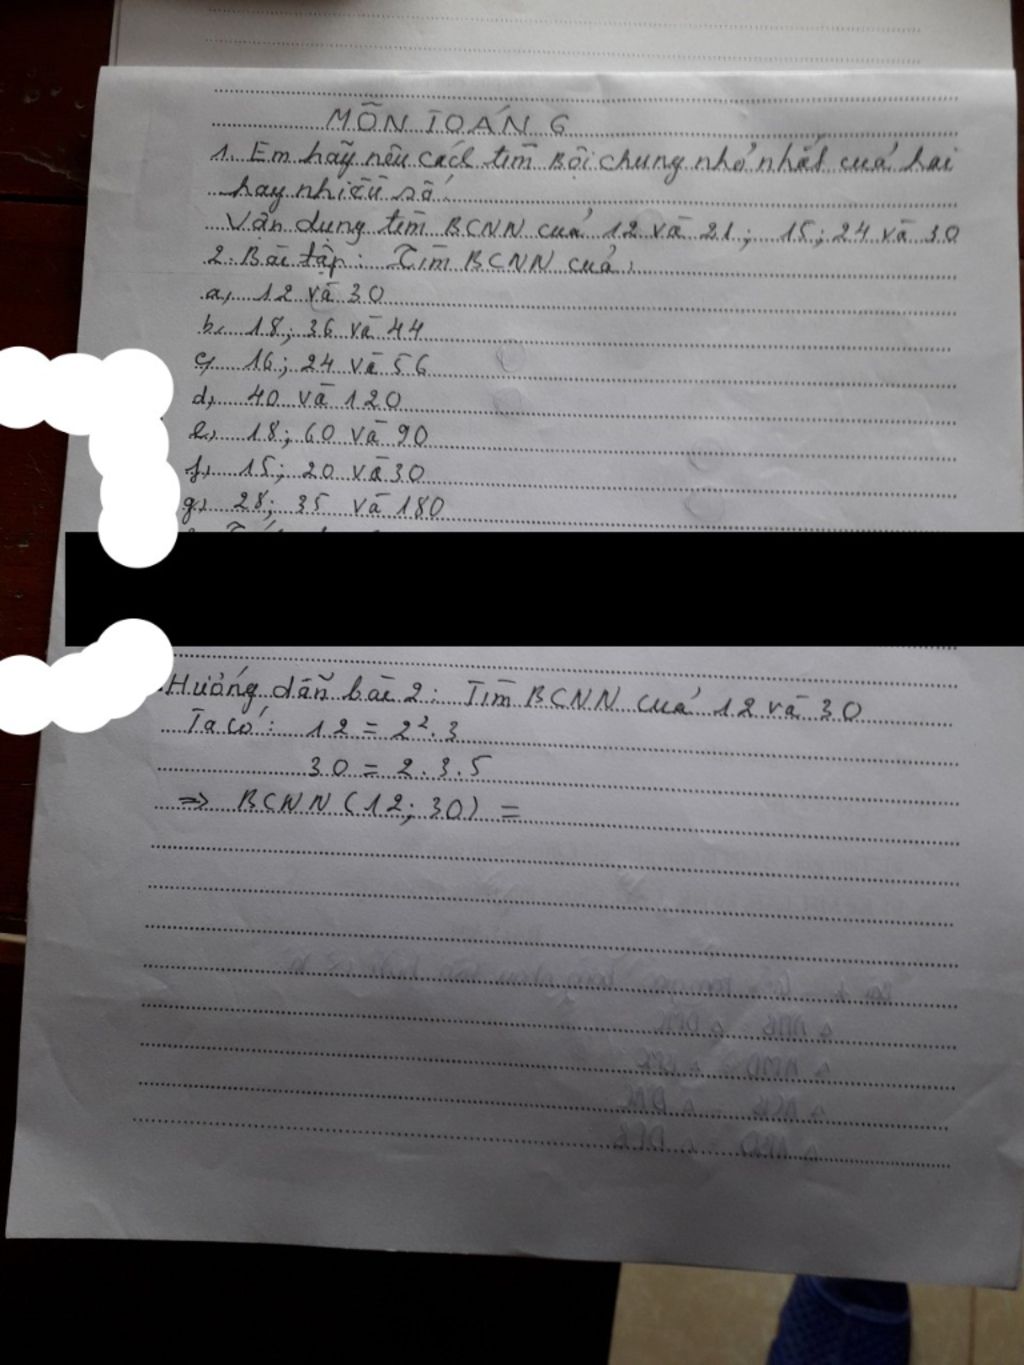 MÔN TOÁN 6
1. Em hãy nêu cách tìm Bội chung nhỏ nhất của hai
hay nhiều số.
Vận dụng tìm BCNN của 12 và 21; 15; 24 và 30
2. Bài tập: Tìm BCNN của:
a, 12 và 30
b. 18; 36 và 44
c, 16; 24 và 56
d, 40 và 120
e, 18; 60 và 90
f, 15; 20 và 30
g, 28; 35 và 180
Hướng dẫn bài 2: Tìm BCNN của 12 và 30
Ta có: 12 = 2². 3
30 = 2. 3. 5
=> BCNN (12; 30) =